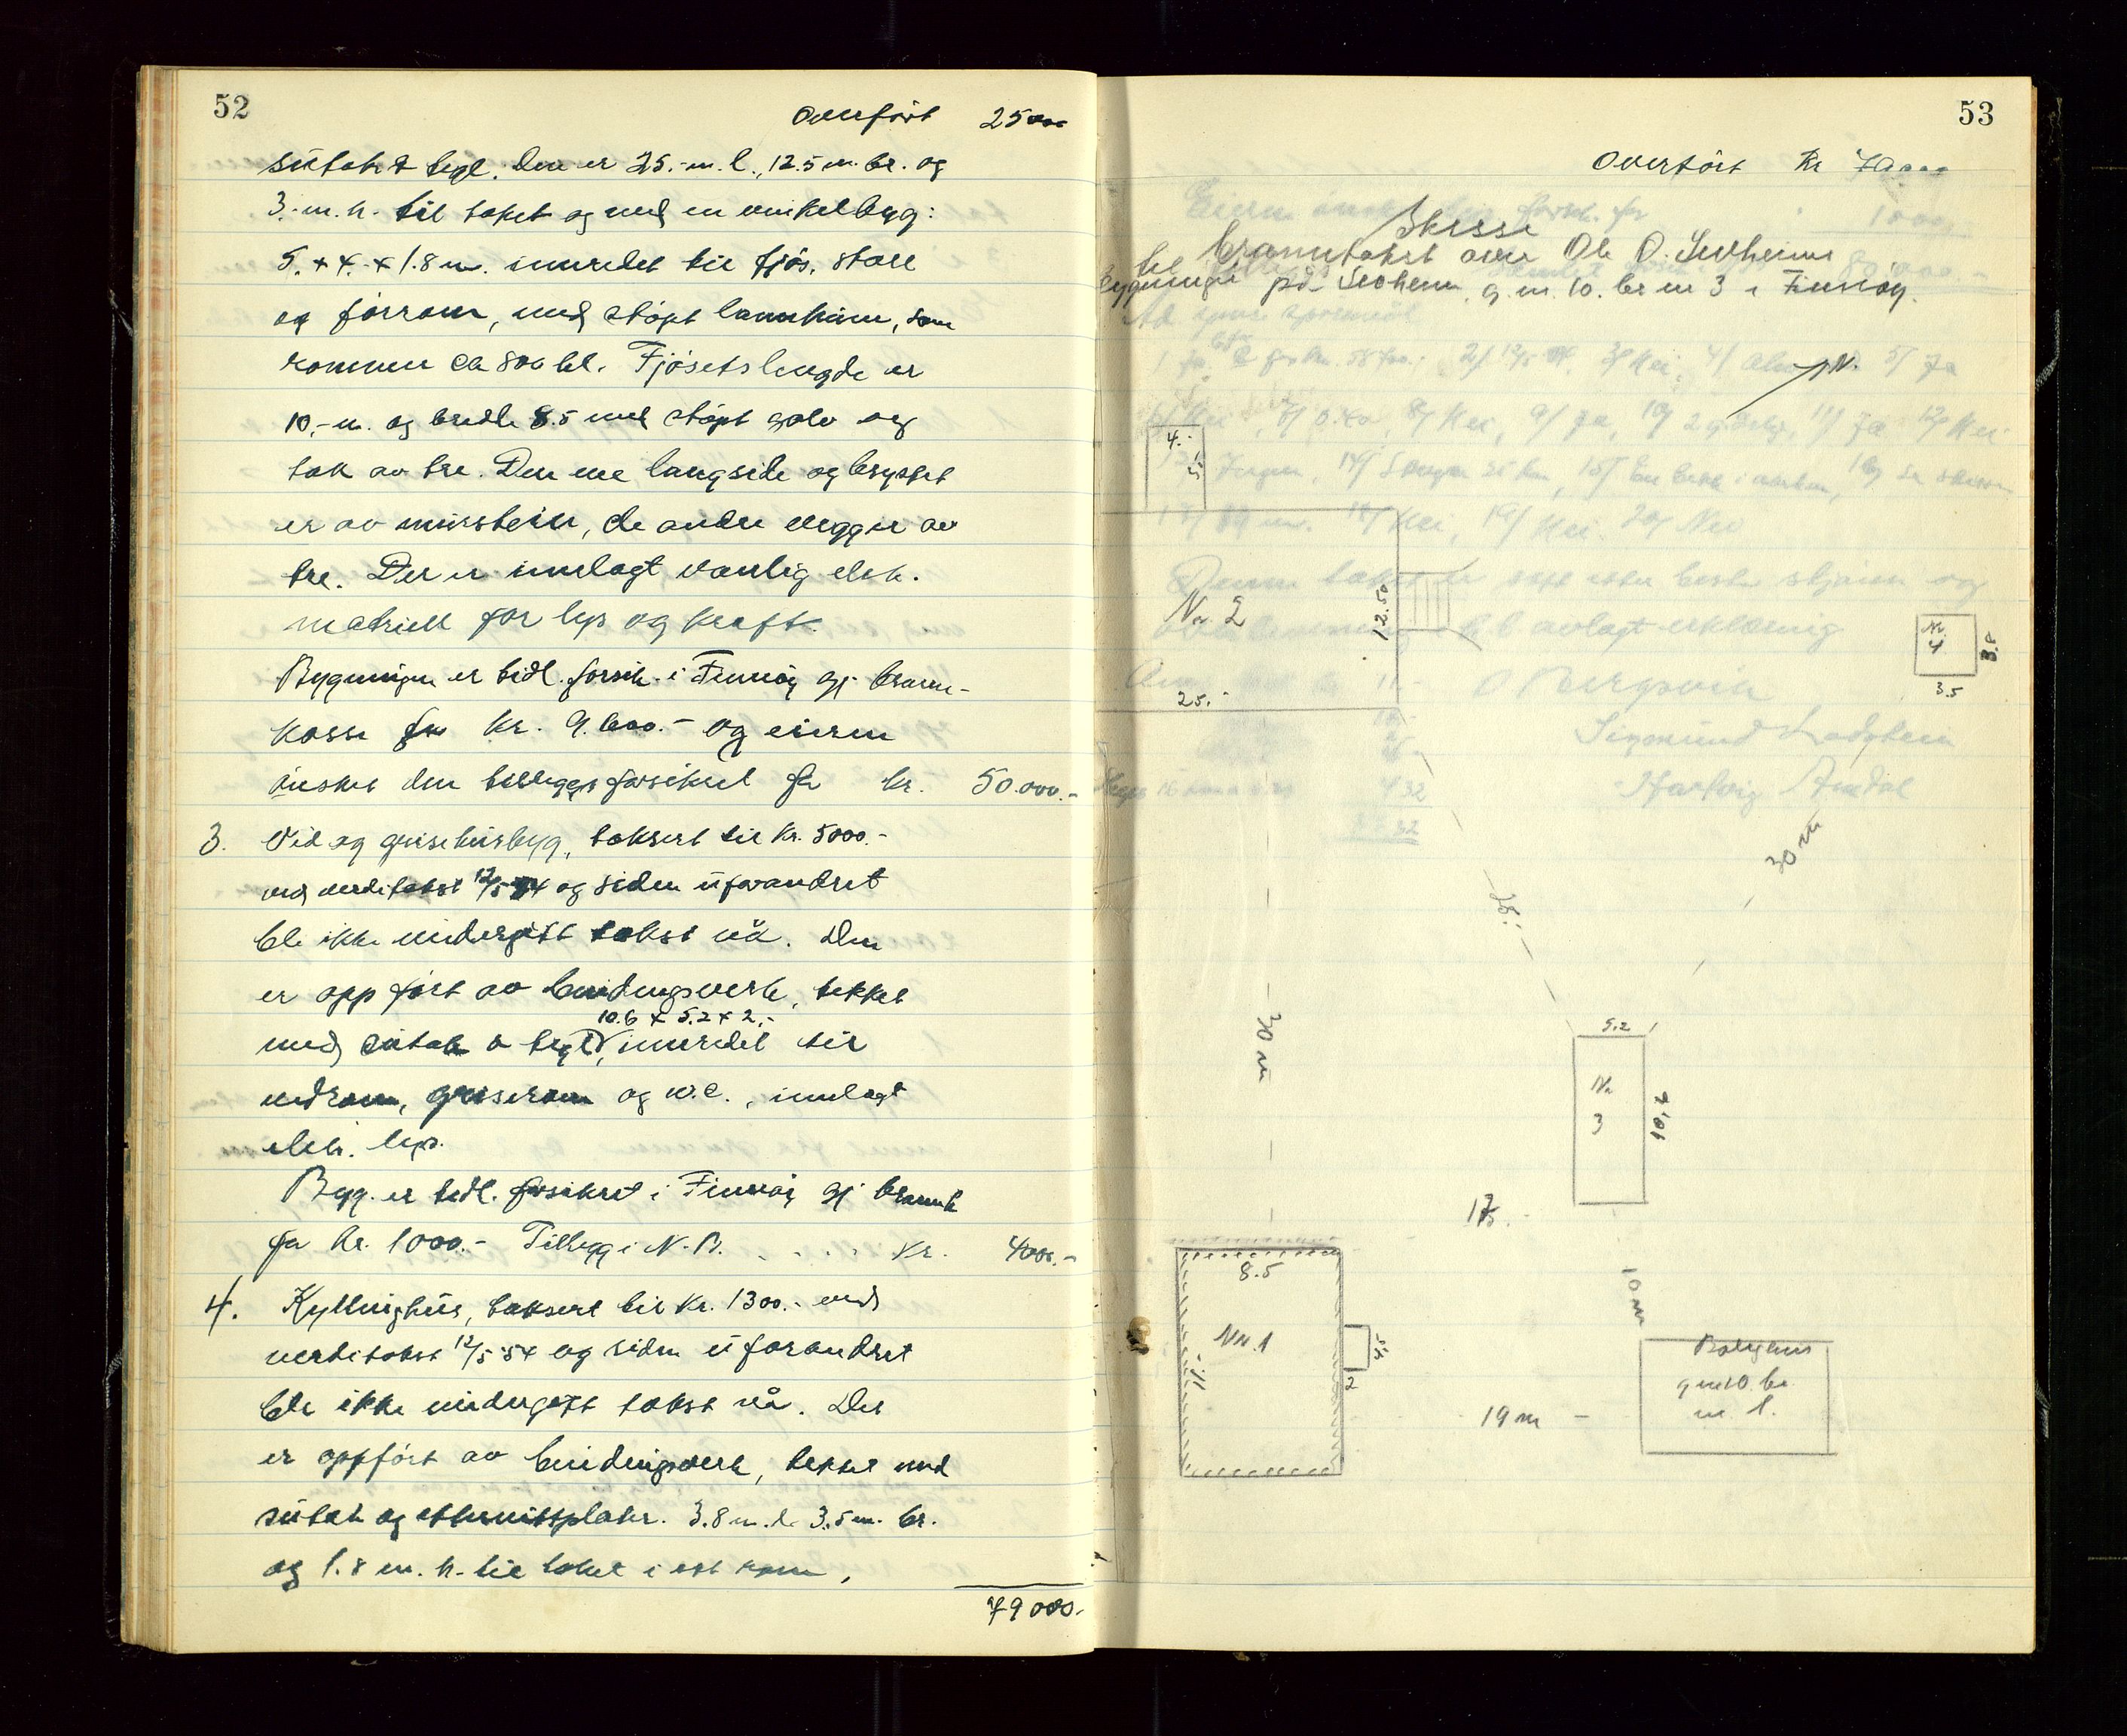 52
Overført 25000
sutak & tegl. Den er 25.-m. l., 12.5 m. br. og
3.-m. h. til taket og med en vinkelbyg:
5. x 4. x 1.8 m. innredet til fjøs, stall
og förrom, med støpt landkum, som
rommer ca 800 hl. Fjøsets lengde er
10,-m. og bredde 8.5 med støpt golv og
tak av tre. Den ene langside og brystet
er av murstein, de andre vegger av
tre. Der er innlagt vanlig elek.
matriell for lys og kraft.
Bygningen er tidl. forsik. i Finnøy gj. brann-
kasse for kr. 9.600.- og eieren
ønsker den tilleggsforsikret for kr. 50.000.-
3. Ved og grisehusbyg, taksert til kr. 5000.-
ved verditakst 12/5 54 og siden uforandret
ble ikke undergitt takst nå. Den
er oppført av bindingsverk, tekket
10.6 x 5.2 x 2,-
med sutak & tegl, innredet til
vedrom, griserom og w.c., innlagt
elek. lys.
Byg. er tidl. forsikret i Finnøy gj brannk
for kr. 1000.- Tillegg i N.B. . . . . Kr. 4000.-
4. Kyllinghus, taksert til kr. 1300.- ved
verditakst 12/5 54 og siden uforandret
ble ikke undergitt takst nå. Det
er oppført av bindingsverk, tekket med
sutak og etternittplater. 3.8 m. l. 3.5 m. br.
og 1.8 m. h. til taket i ett rom,
79000.-
53
Overført Kr 79000
Skisse
til branntakst over Ole O. Sevheims
bygninger på Sevheim g. nr. 10. br nr 3 i Finnöy.
N.
4.-
5.-
Nr 2
12.50
25.-
Nr.
4
3.8
3.5
30 m
35.-
30 m
5.2
Nr
3
10,6
17.-
10 m
8.5
Nr. 1
11.-
2
4.5
19 m -
Bolighus
g nr 10. br.
nr 1.